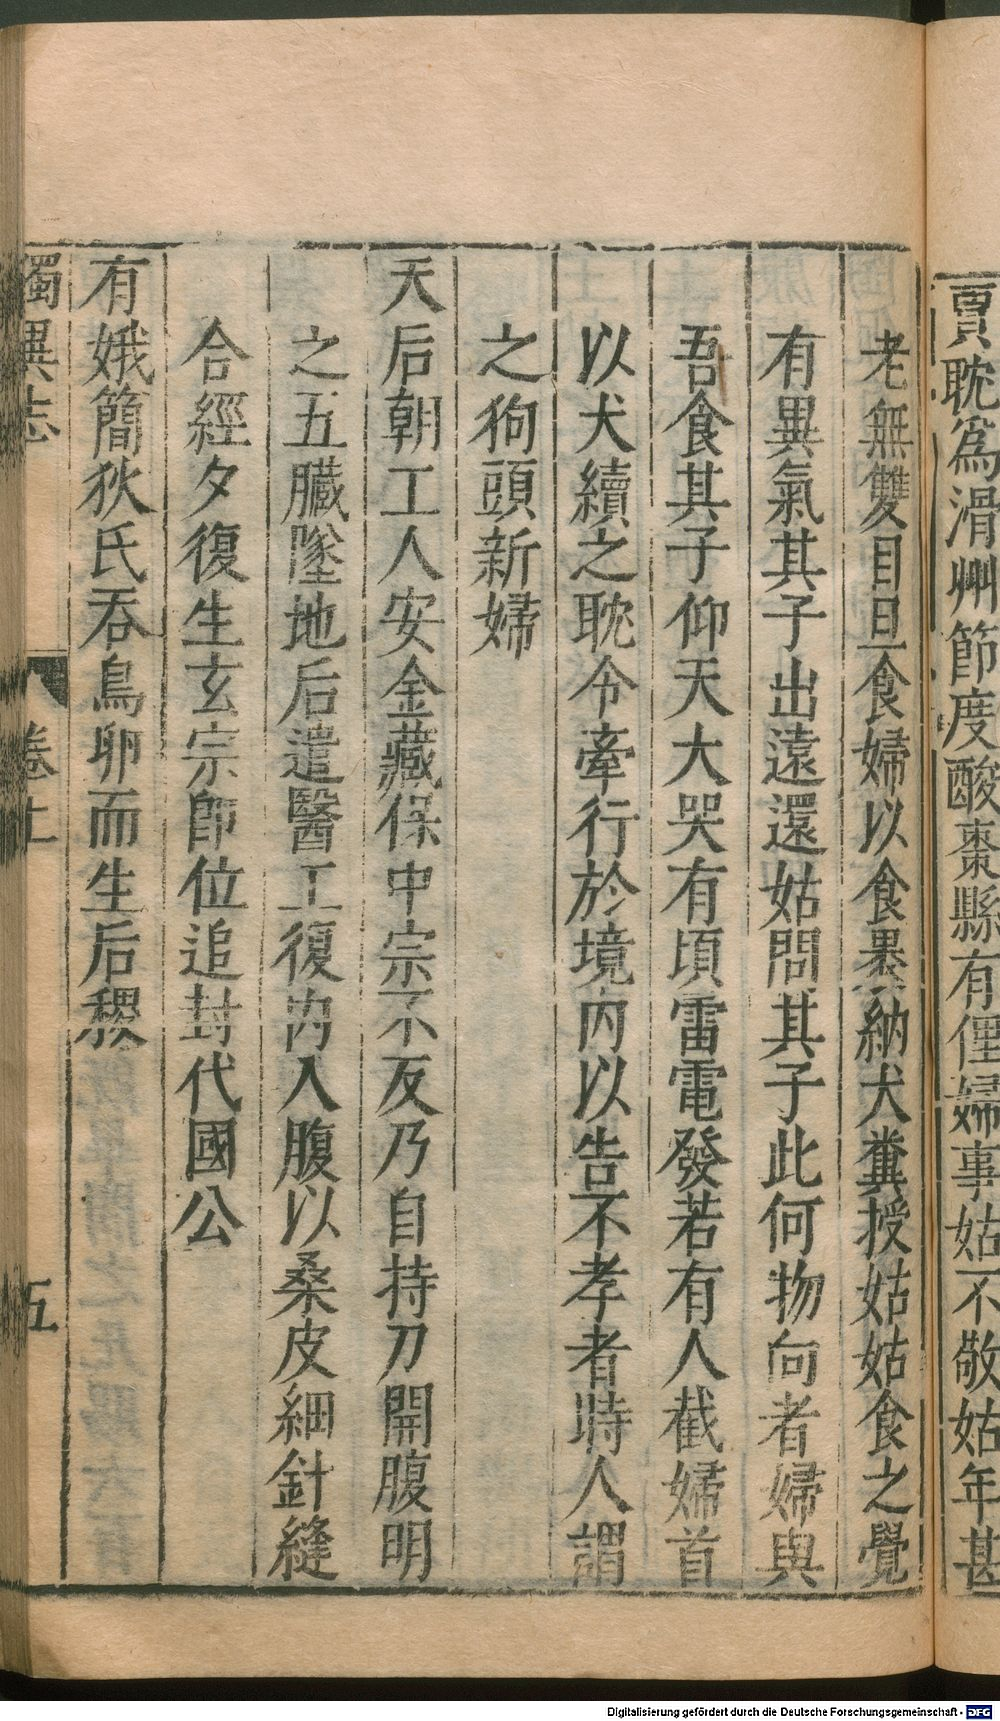 賈耽爲滑州節度酸棗縣有俚婦事姑不敬姑年甚
老無雙目旦食婦以食墨納犬糞授姑姑食之覺
有異氣其子出遠還姑問其子此何物向者婦與
吾食其子仰天大哭有頃雷電發若有人截婦首
以犬續之耽令牽行於境内以告不孝者時人謂
之狗頭新婦
天后朝工人安金藏保中宗不反乃自持刀開腹明
之五臟墜地后遣醫工復内入腹以桑皮細針縫
合經夕復生玄宗即位追封代國公
有娥簡狄氏吞鳥卵而生后稷
獨異志 卷上 五
Digitalisierung gefördert durch die Deutsche Forschungsgemeinschaft - DFG